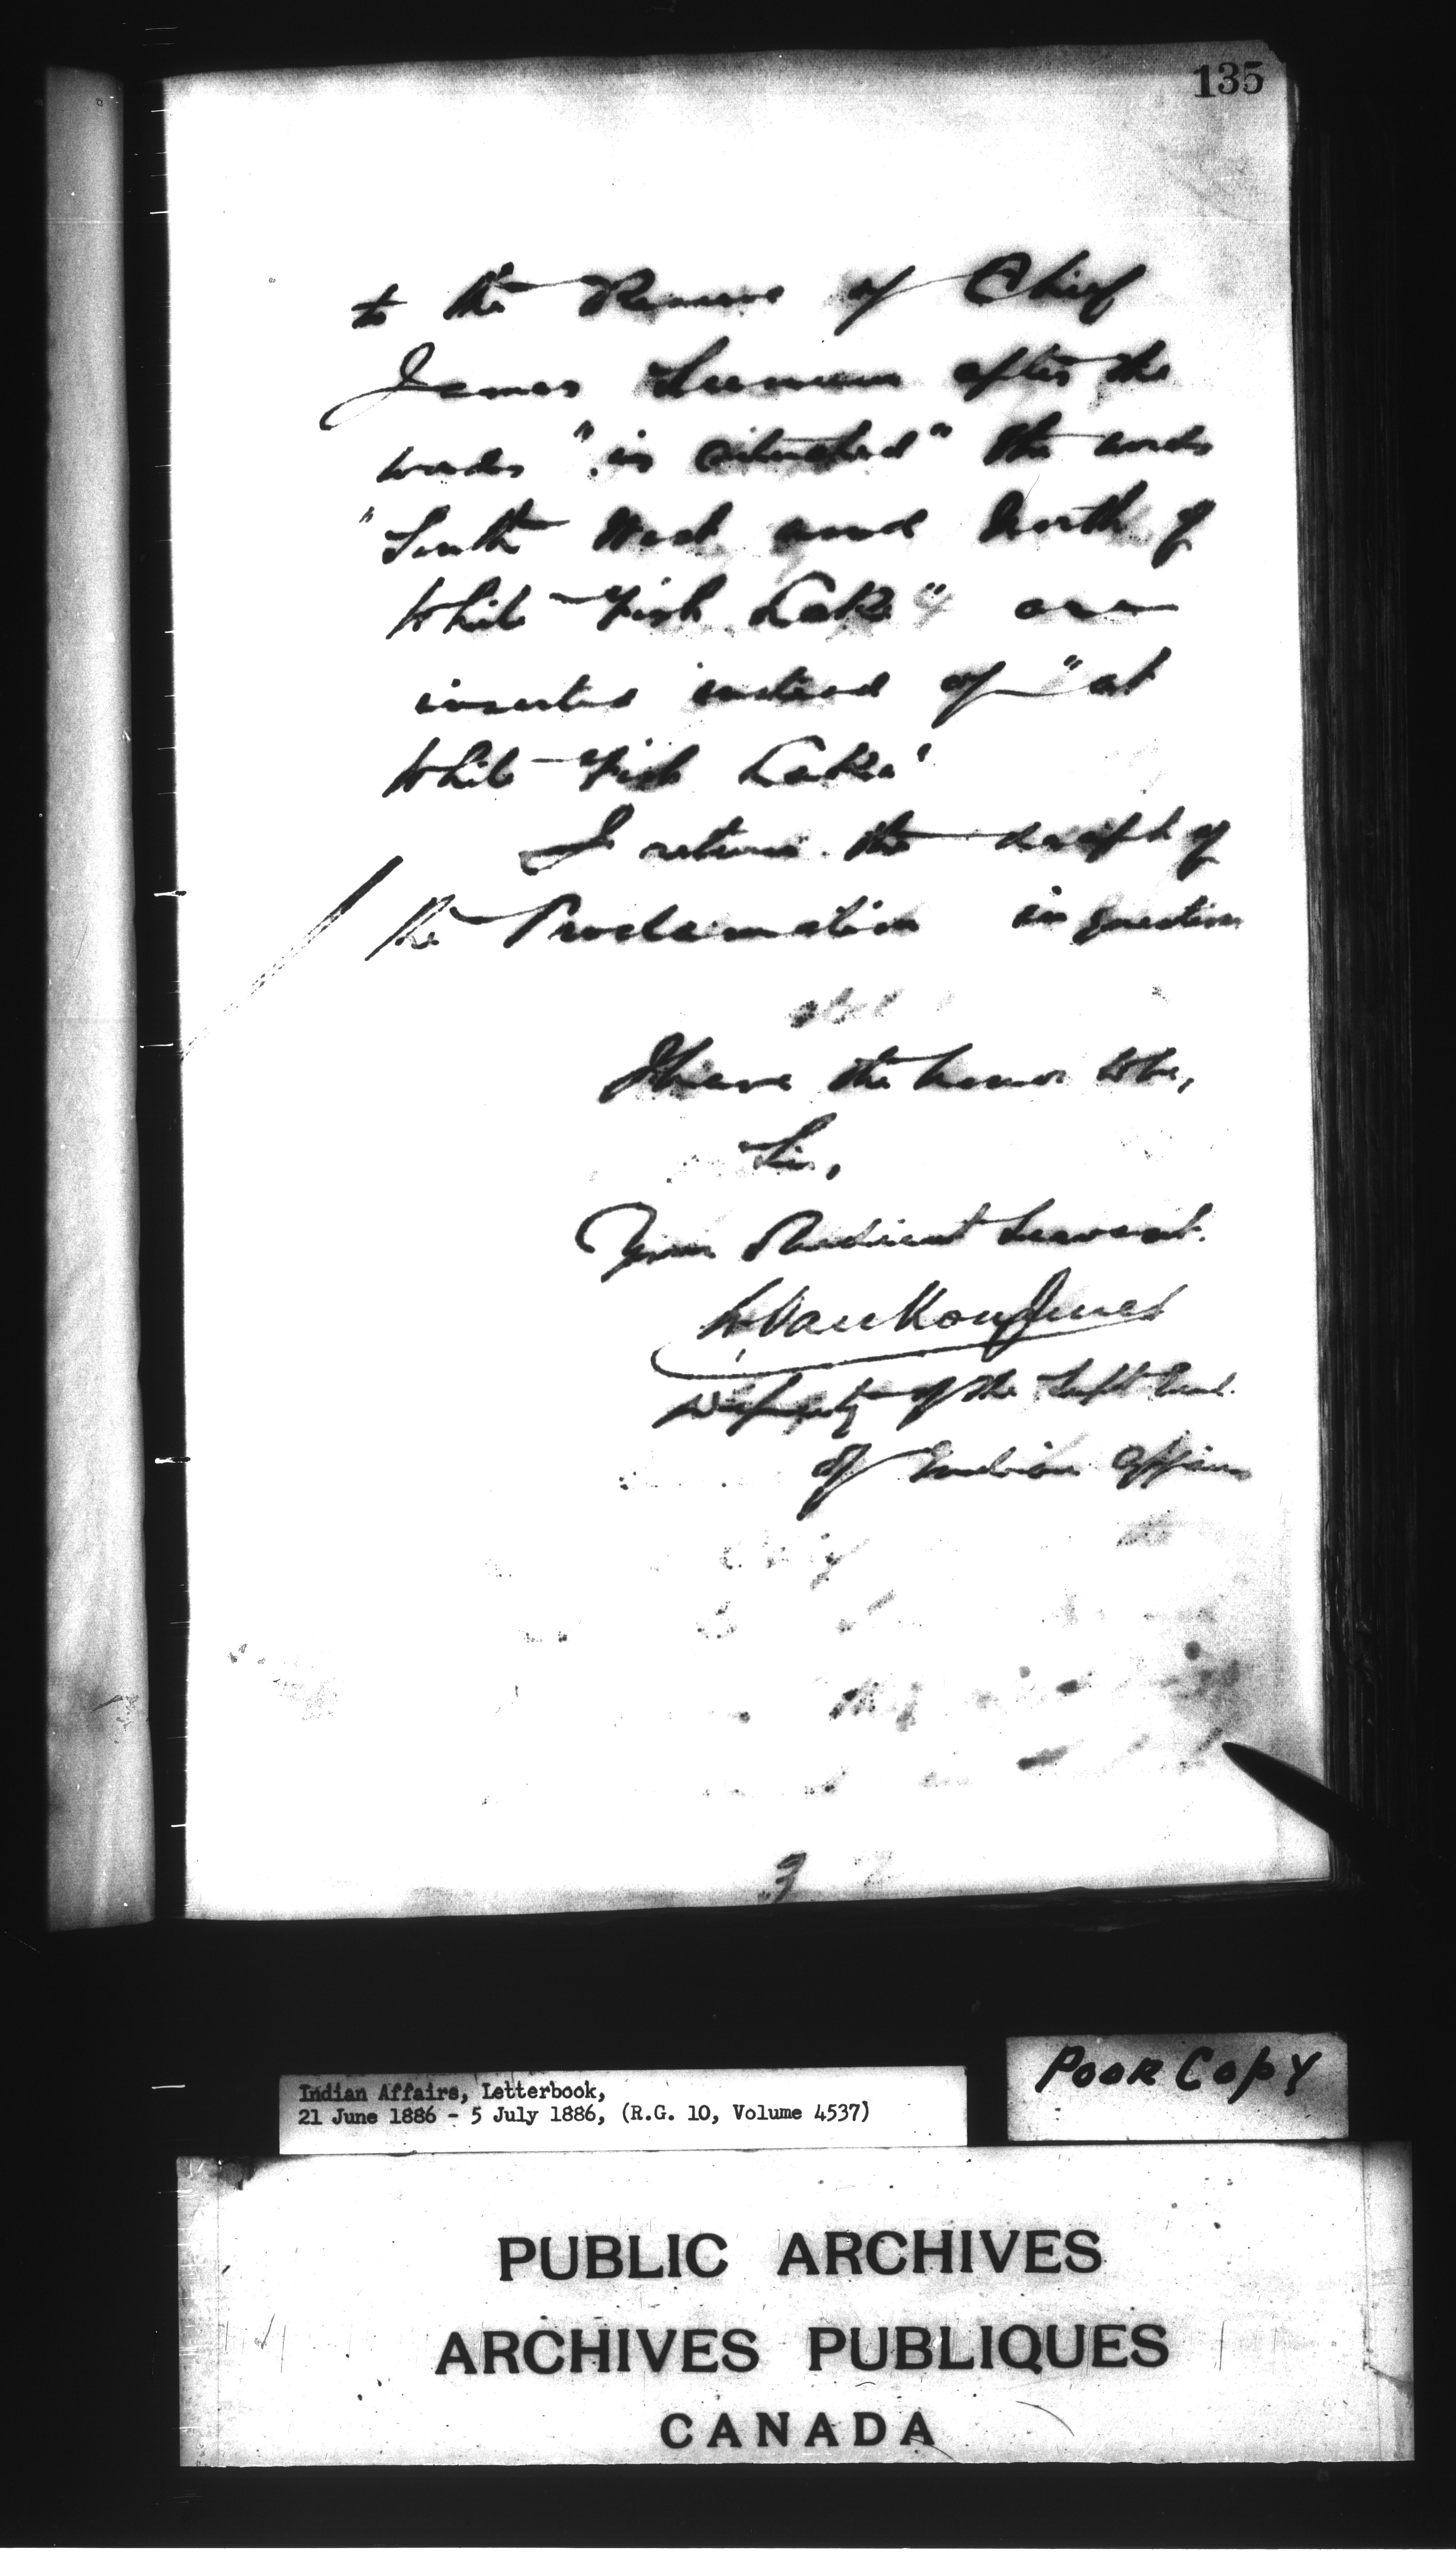 135
to the Reserve of Chief
James Seenum after the
words "is situated" the words
"South West and North of
White Fish Lake" are
inserted instead of "at
White Fish Lake"
I return the draft of
the Proclamation in question
I have the honor to be,
Sir,
Your Obedient Servant.
L VanKoughnet
Deputy of the Supt Genl.
of Indian Affairs
3
Indian Affairs, Letterbook,
21 June 1886 - 5 July 1886, (R.G. 10, Volume 4537)
POOR COPY
PUBLIC ARCHIVES
ARCHIVES PUBLIQUES
CANADA